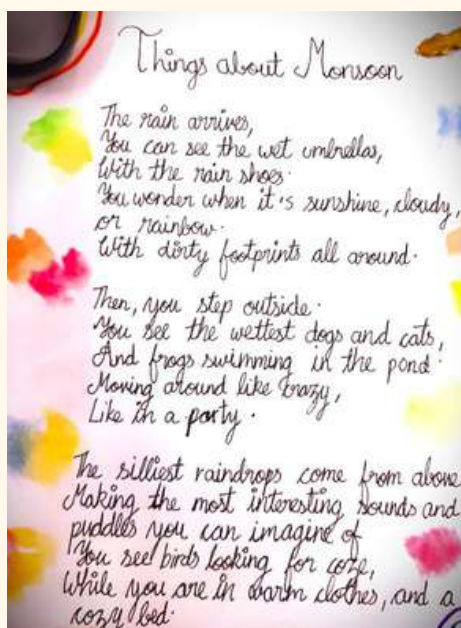 Things about Monsoon
The rain arrives,
You can see the wet umbrellas,
With the rain shoes.
You wonder when it's sunshine, cloudy,
or rainbow.
With dirty footprints all around.
Then, you step outside.
You see the wettest dogs and cats,
And frogs swimming in the pond.
Moving around like crazy,
Like in a party.
The silliest raindrops come from above
Making the most interesting sounds and
puddles you can imagine of
You see birds looking for coze,
While you are in warm clothes, and a
cozy bed.